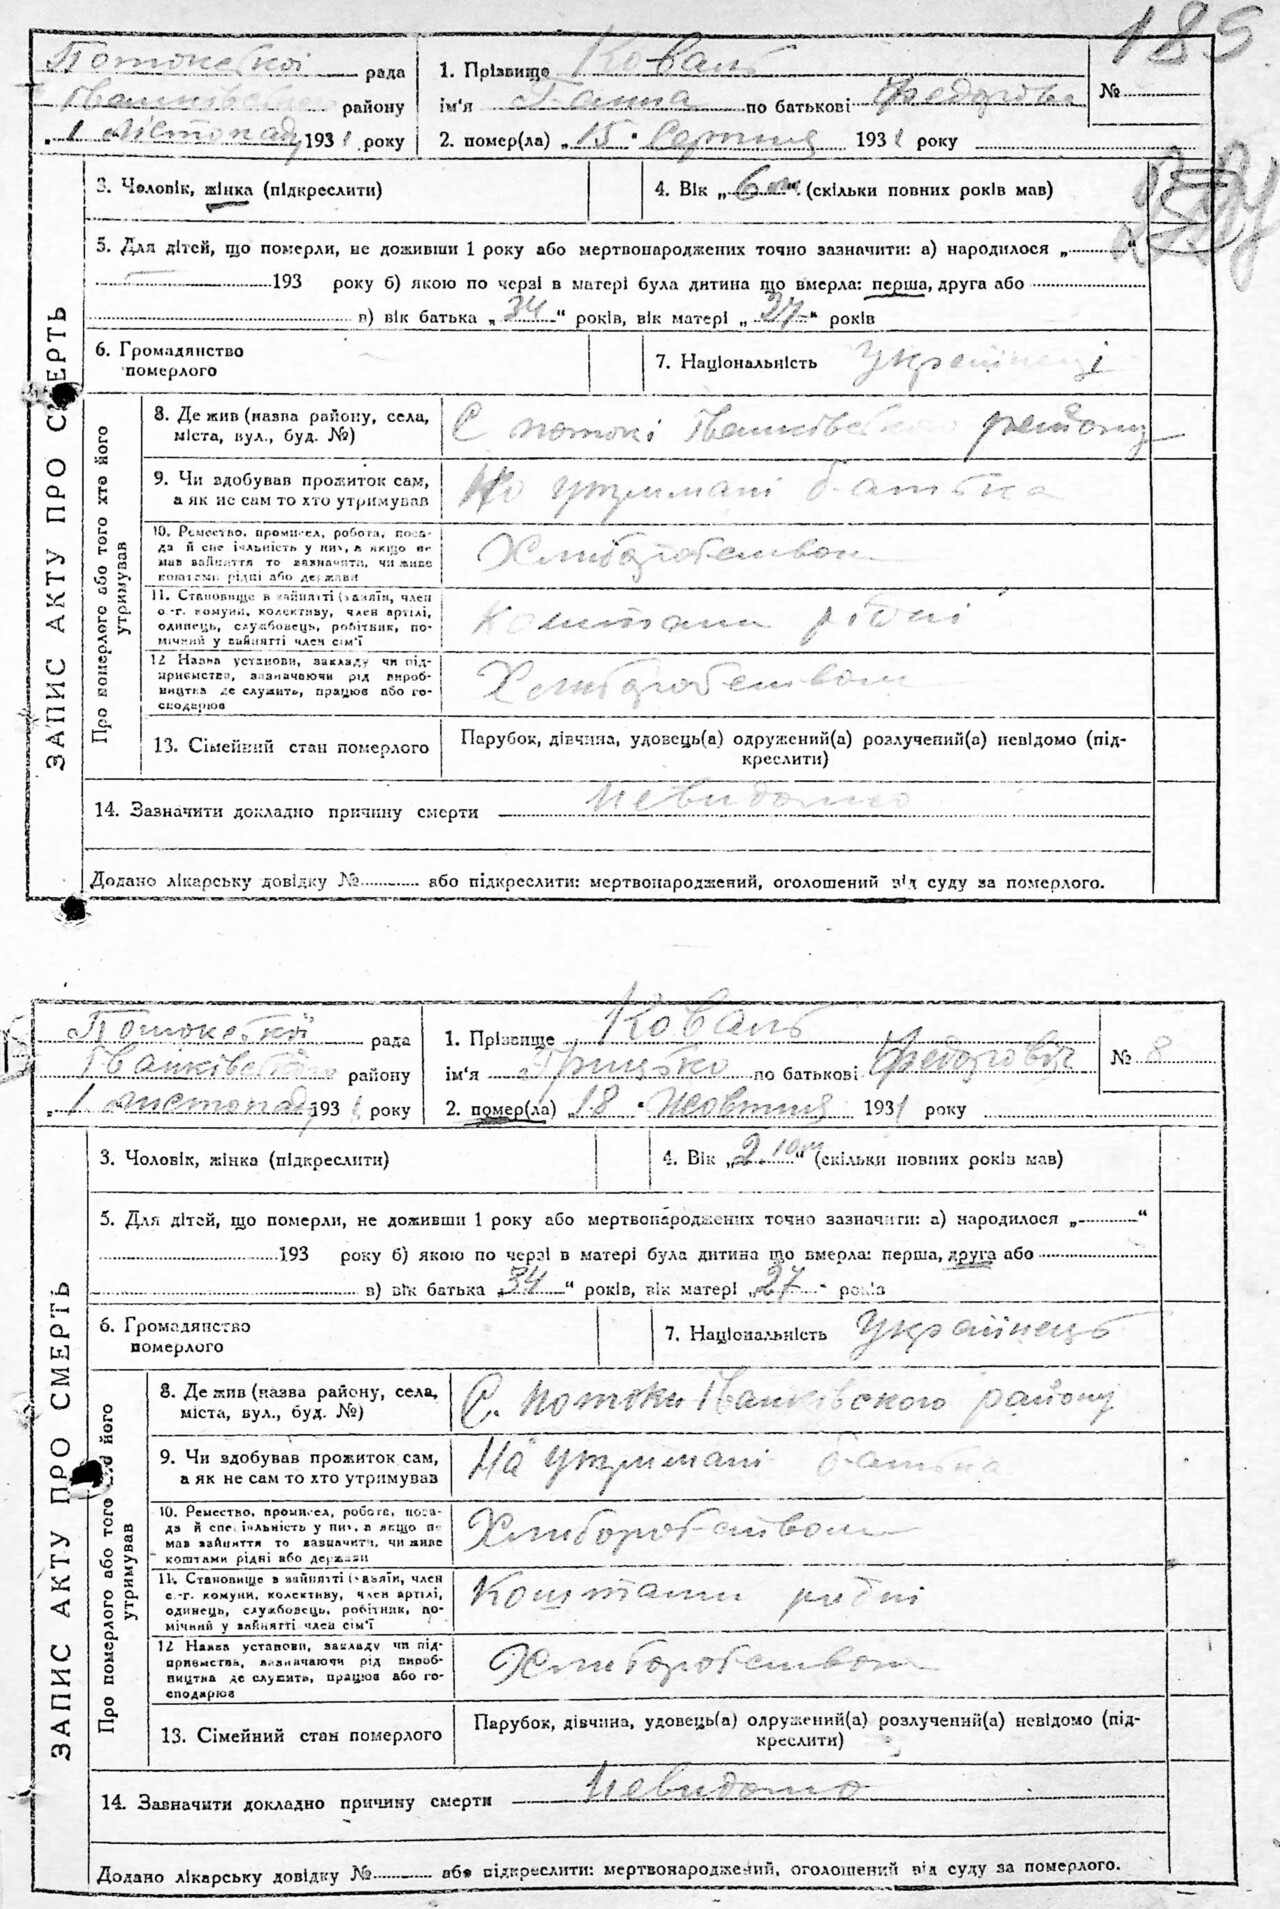 185
Потокської рада
Іванківського району
„ 1 листопада 1931 року
1. Прізвище Коваль
ім'я Ганна по батькові Федорівна
№
2. помер(ла) „ 15 " Серпня 1931 року
3. Чоловік, жінка (підкреслити)
4. Вік „ 6 " (скільки повних років мав)
5. Для дітей, що померли, не доживши 1 року або мертвонароджених точно зазначити: а) народилося „ "
193 року б) якою по черзі в матері була дитина що вмерла: перша, друга або
в) вік батька „ 34 " років, вік матері „ 27 " років
6. Громадянство
померлого
7. Національність Українець
ЗАПИС АКТУ ПРО СМЕРТЬ
Про померлого або того хто його
утримував
8. Де жив (назва району, села,
міста, вул., буд. №)
С потокі Іванківського району
9. Чи здобував прожиток сам,
а як не сам то хто утримував
На утримані батька
10. Ремество, промисел, робота, поса-
да й спеціяльність у них, а якщо не
мав зайняття то зазначити, чи живе
коштами рідні або держави
Хлиборобством
11. Становище в зайнятті (хазяїн, член
с.-г. комуни, колективу, член артілі,
одинець, службовець, робітник, по-
мічний у зайнятті член сім'ї
Коштами рідні
12 Назва установи, закладу чи під-
приємства, зазначаючи рід вироб-
ництва де служить, працює або го-
сподарює
Хлиборобством
13. Сімейний стан померлого
Парубок, дівчина, удовець(а) одружений(а) розлучений(а) невідомо (під-
креслити)
14. Зазначити докладно причину смерти невидомо
Додано лікарську довідку № або підкреслити: мертвонароджений, оголошений від суду за померлого.
Потокської рада
Іванківського району
„ 1 листопада 1931 року
1. Прізвище Коваль
ім'я Грицько по батькові Федорович
№ 8
2. помер(ла) „ 18 " Жовтня 1931 року
3. Чоловік, жінка (підкреслити)
4. Вік „ 2 " (скільки повних років мав)
5. Для дітей, що померли, не доживши 1 року або мертвонароджених точно зазначити: а) народилося „ "
193 року б) якою по черзі в матері була дитина що вмерла: перша, друга або
в) вік батька „ 34 " років, вік матері „ 27 " років
6. Громадянство
померлого
7. Національність Українець
ЗАПИС АКТУ ПРО СМЕРТЬ
Про померлого або того його
утримував
8. Де жив (назва району, села,
міста, вул., буд. №)
С. Потоки Іванківського району
9. Чи здобував прожиток сам,
а як не сам то хто утримував
На утримані батька
10. Ремество, промисел, робота, поса-
да й спеціяльність у них, а якщо не
мав зайняття то зазначити, чи живе
коштами рідні або держави
Хлиборобством
11. Становище в зайнятті (хазяїн, член
с.-г. комуни, колективу, член артілі,
одинець, службовець, робітник, по-
мічний у зайнятті член сім'ї
Коштами ридні
12 Назва установи, закладу чи під-
приємства, зазначаючи рід вироб-
ництва де служить, працює або го-
сподарює
Хлиборобством
13. Сімейний стан померлого
Парубок, дівчина, удовець(а) одружений(а) розлучений(а) невідомо (під-
креслити)
14. Зазначити докладно причину смерти Невидомо
Додано лікарську довідку № або підкреслити: мертвонароджений, оголошений від суду за померлого.